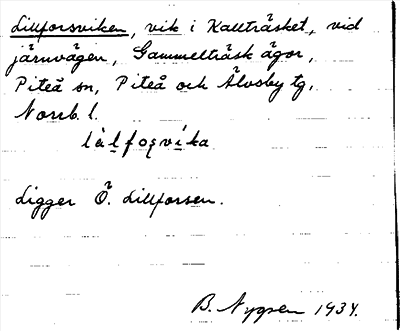 Lillforsviken, vik i Kallträsket, vid
järnvägen, Gammelträsk ägor,
Piteå sn, Piteå och Älvsby tg,
Norrb. l.
Ligger Ö. Lillforsen.
B. Nygren 1934.